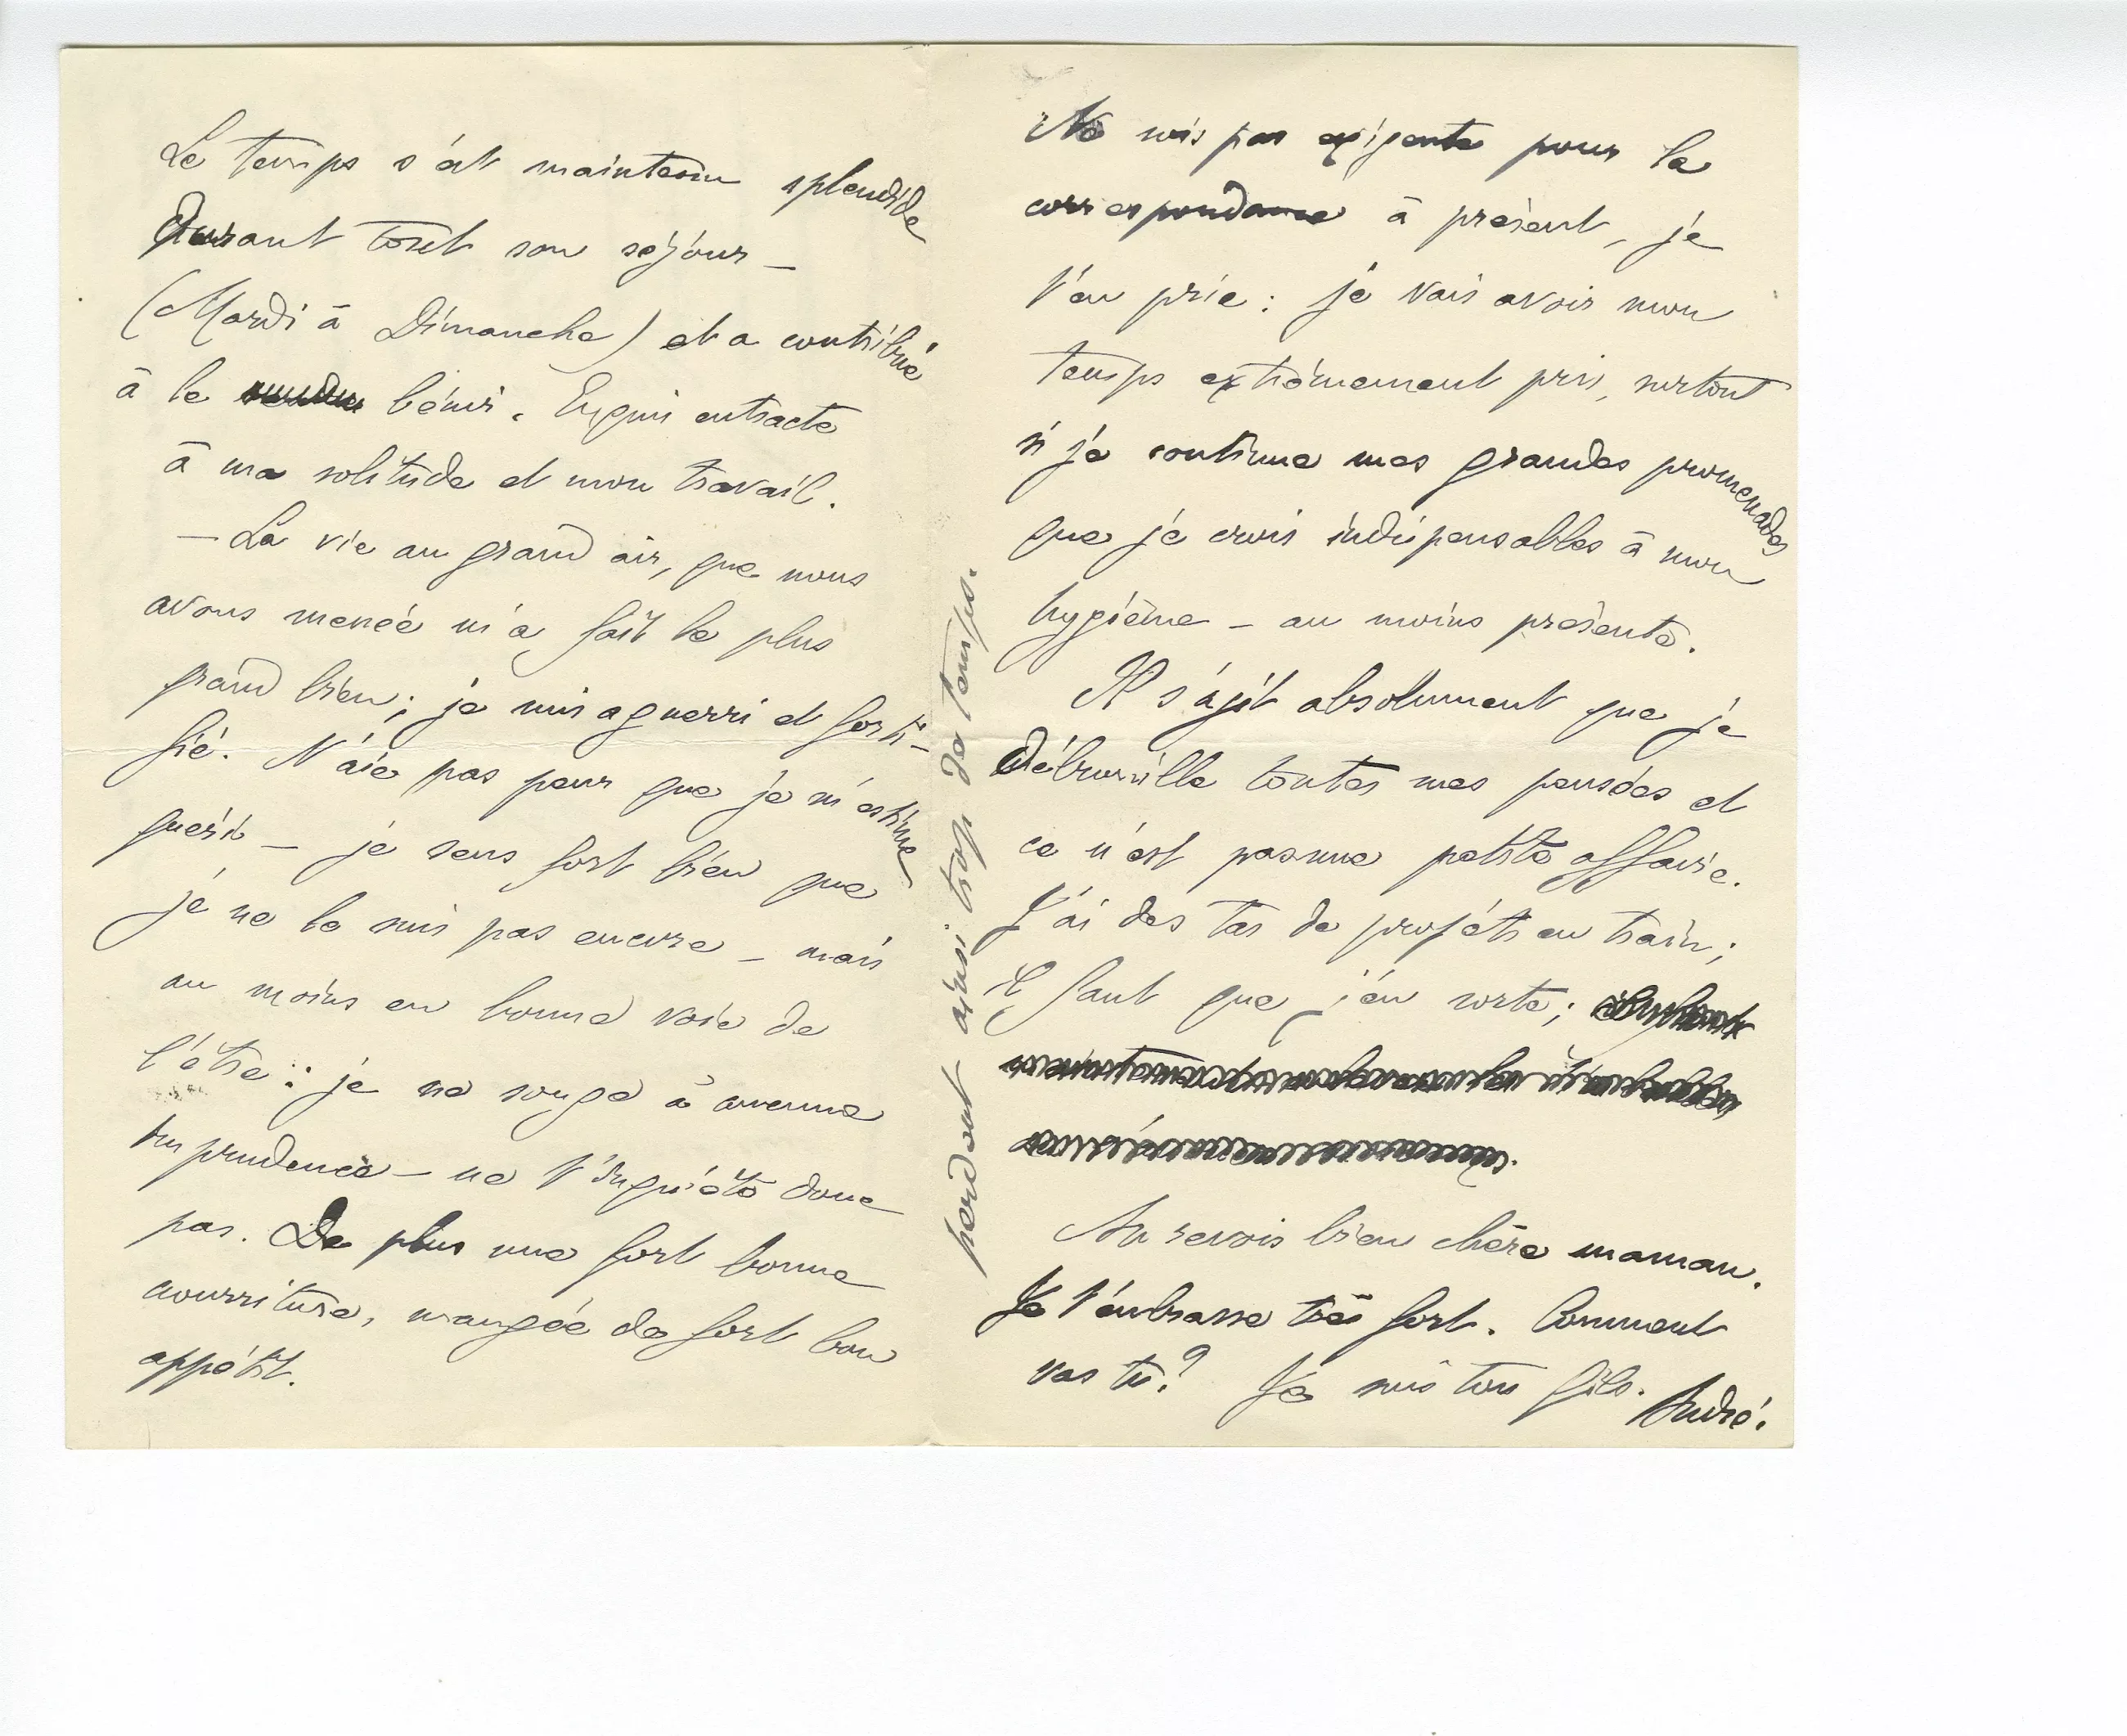 Le temps s'est maintenu splendide
durant tout son séjour –
(Mardi à Dimanche) et a contribué
à le bénir. Exquis entracte
à ma solitude et mon travail.
– La vie au grand air, que nous
avons menée m'a fait le plus
grand bien ; je suis aguerri et forti-
fié. N'aie pas peur que je m'estime
guéri – je sens fort bien que
je ne le suis pas encore – mais
au moins en bonne voie de
l'être : je ne songe à aucune
imprudence – ne t'inquiète donc
pas. De plus une fort bonne
nourriture, mangée de fort bon
appétit.
Ne sois pas exigente pour la
correspondance à présent, je
t'en prie : je vais avoir mon
temps extrêmement pris, surtout
si je continue mes grandes promenades
que je crois indispensables à mon
hygiène – au moins présente.
Il s'agit absolument que je
débrouille toutes mes pensées et
ce n'est pas une petite affaire.
J'ai des tas de projets en train ;
il faut que j'en sorte ;
Au revoir bien chère maman.
Je t'embrasse très fort. Comment
vas tu ? Je suis ton fils. André.
perdent ainsi trop de temps.